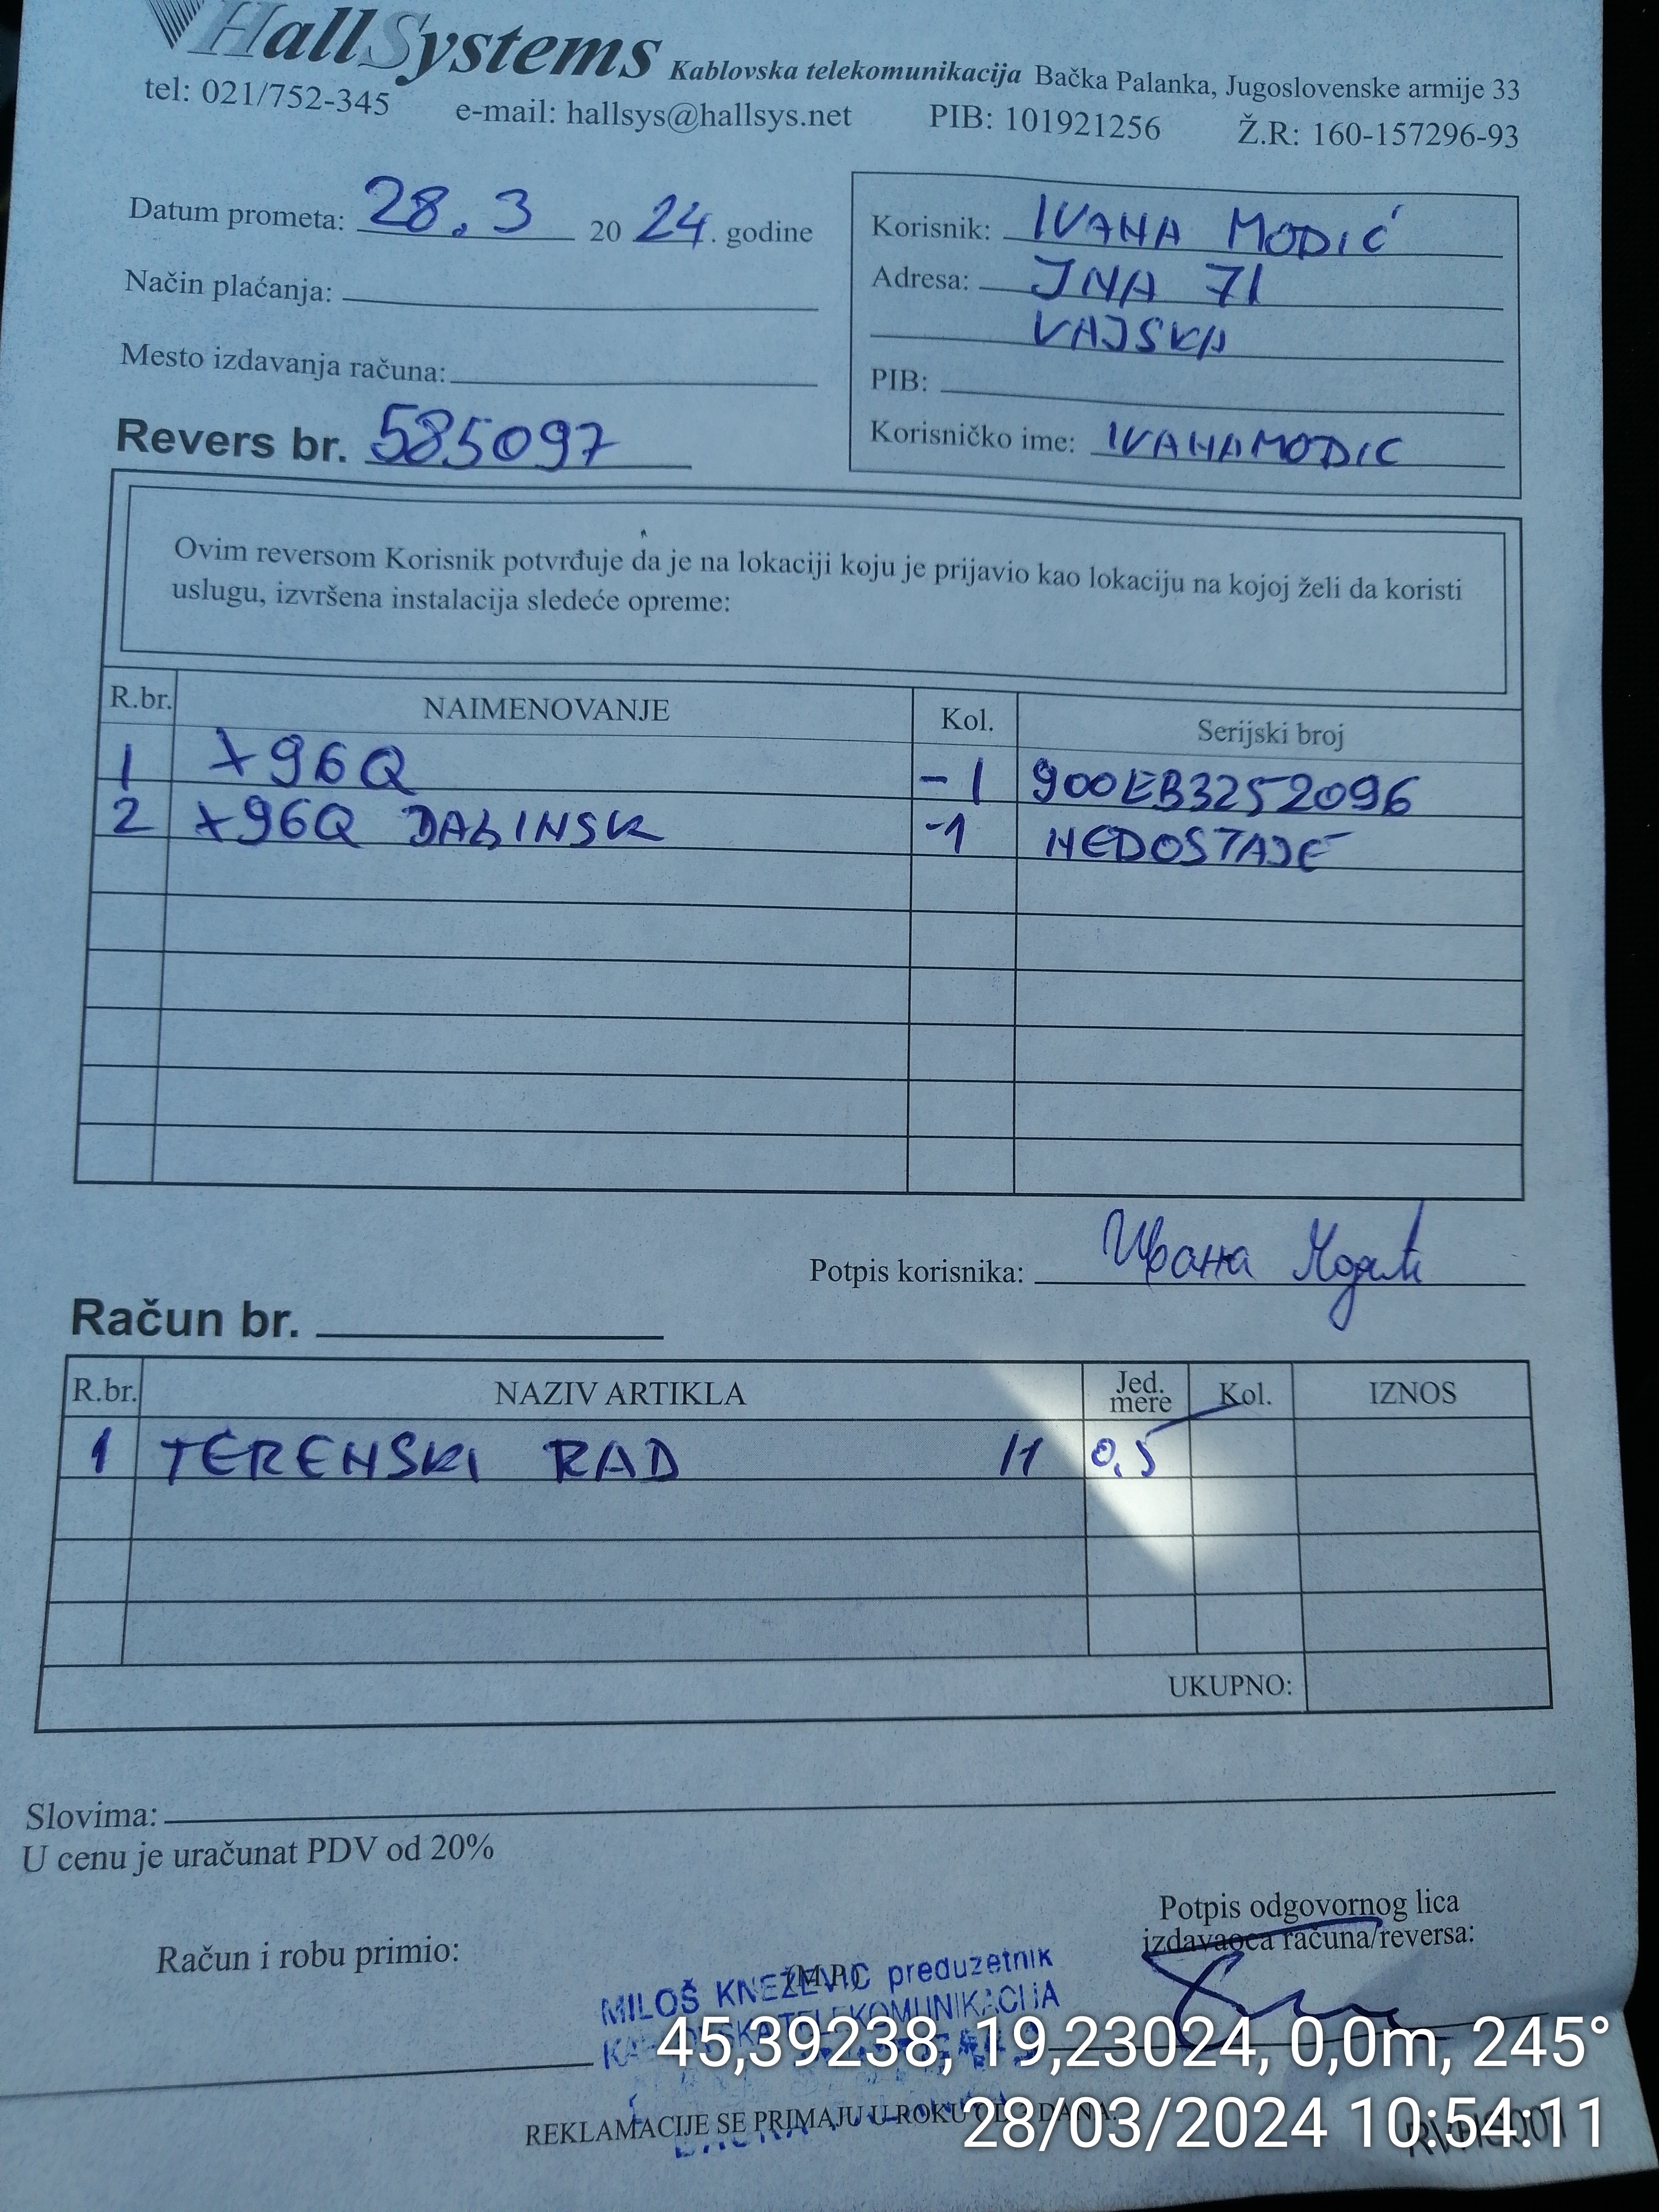 HallSystems Kablovska telekomunikacija Bačka Palanka, Jugoslovenske armije 33
tel: 021/752-345 e-mail: hallsys@hallsys.net PIB: 101921256 Ž.R: 160-157296-93
Datum prometa: 28.3 2024. godine
Način plaćanja:
Mesto izdavanja računa:
Revers br. 585097
Korisnik: IVANA MODIĆ
Adresa: JNA 71
VAJSKA
PIB:
Korisničko ime: IVANAMODIC
Ovim reversom Korisnik potvrđuje da je na lokaciji koju je prijavio kao lokaciju na kojoj želi da koristi
uslugu, izvršena instalacija sledeće opreme:
R.br. NAIMENOVANJE Kol. Serijski broj
1 X96Q -1 900EB3252096
2 X96Q DALINSK -1 NEDOSTAJE
Potpis korisnika: Ивана Модић
Račun br.
R.br. NAZIV ARTIKLA Jed. mere Kol. IZNOS
1 TERENSKI RAD 11 0,5
UKUPNO:
Slovima:
U cenu je uračunat PDV od 20%
Potpis odgovornog lica
izdavaoca računa/reversa:
Račun i robu primio:
(M.P.)
MILOŠ KNEŽEVIĆ preduzetnik
KABLOVSKA TELEKOMUNIKACIJA
45,39238, 19,23024, 0,0m, 245°
REKLAMACIJE SE PRIMAJU U ROKU OD DANA.
28/03/2024 10:54:11